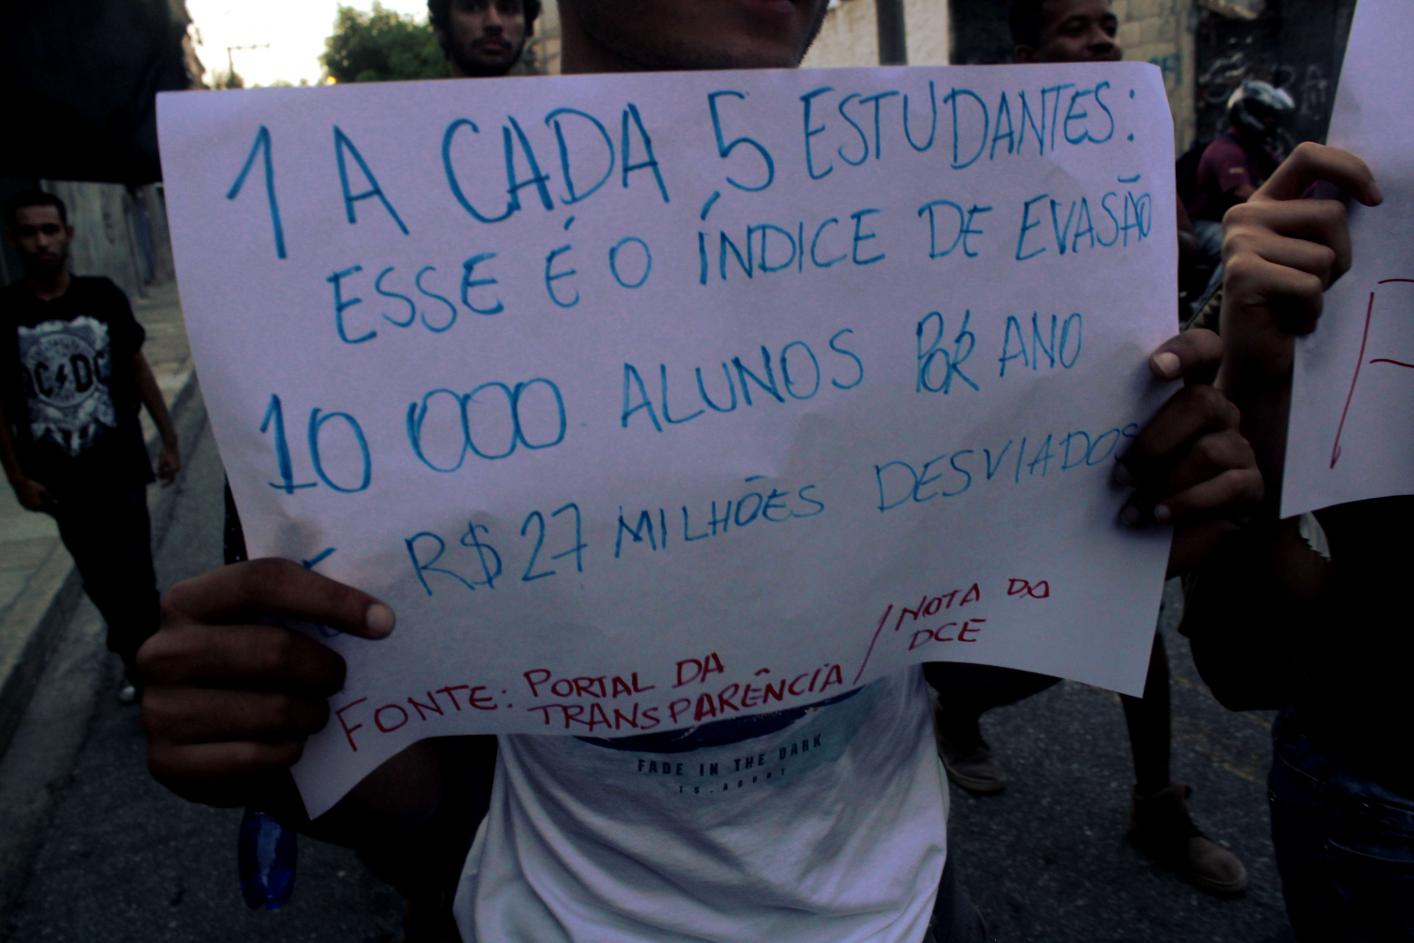 1 A CADA 5 ESTUDANTES:
ESSE É O ÍNDICE DE EVASÃO
10 000 ALUNOS POR ANO
R$ 27 MILHÕES DESVIADOS
FONTE: PORTAL DA
TRANSPARÊNCIA /
NOTA DO
DCE
FADE IN THE DARK
AC⚡DC